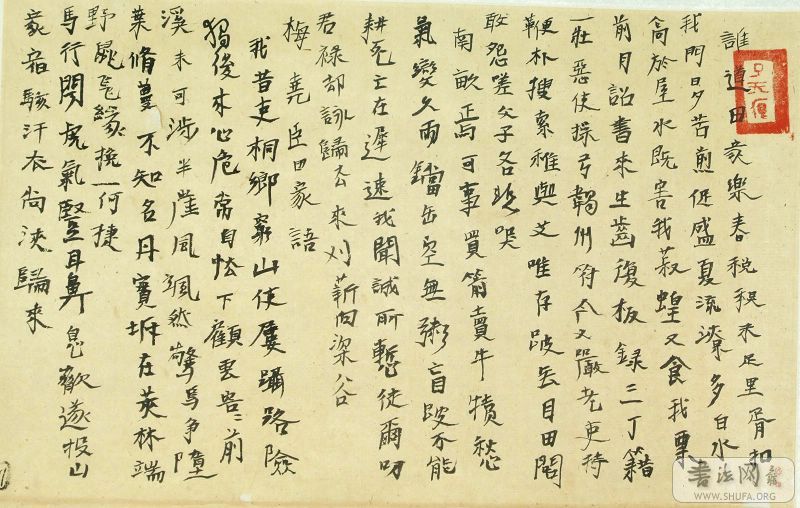 誰道田家樂春稅秋未足里胥扣
我門日夕苦煎促盛夏流潦多白水
高於屋水既害我菽蝗又食我粟
前月詔書來生齒復板錄三丁籍
一壯惡使操弓韣州符今又嚴老吏持
鞭朴搜索稚與艾唯存跛無目田閭
敢怨嗟父子各悲哭
南畝焉可事買箭賣牛犢愁
氣變久雨鐺缶空無粥盲跛不能
耕死亡在遲速我聞誠所慙徒爾叨
君祿却詠歸去來刈薪向深谷
梅堯臣田家語
我昔吏桐鄉窮山使屢躡路險
獨後來心危常自怯下顧雲容容前
溪未可涉半崖風颯然驚鳥爭墮
葉脩蔓不知名丹實坼在莢林端
野鼠飛緣挽一何捷
馬行聞虎氣豎耳鼻息歙遂投山
家宿駭汗衣尚浹歸來
書法网
WWW.SHUFA.ORG